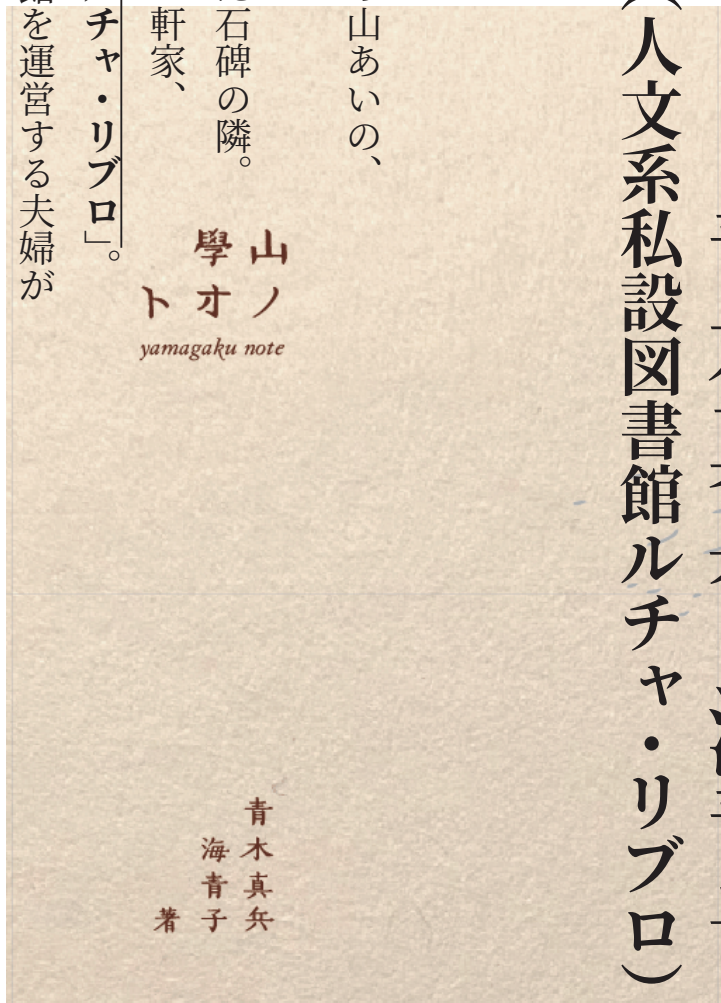 （人文系私設図書館ルチャ・リブロ）
山あいの、
石碑の隣。
軒家、
チャ・リブロ」。
を運営する夫婦が
山學
ノオト
yamagaku note
青木真兵
海青子
著